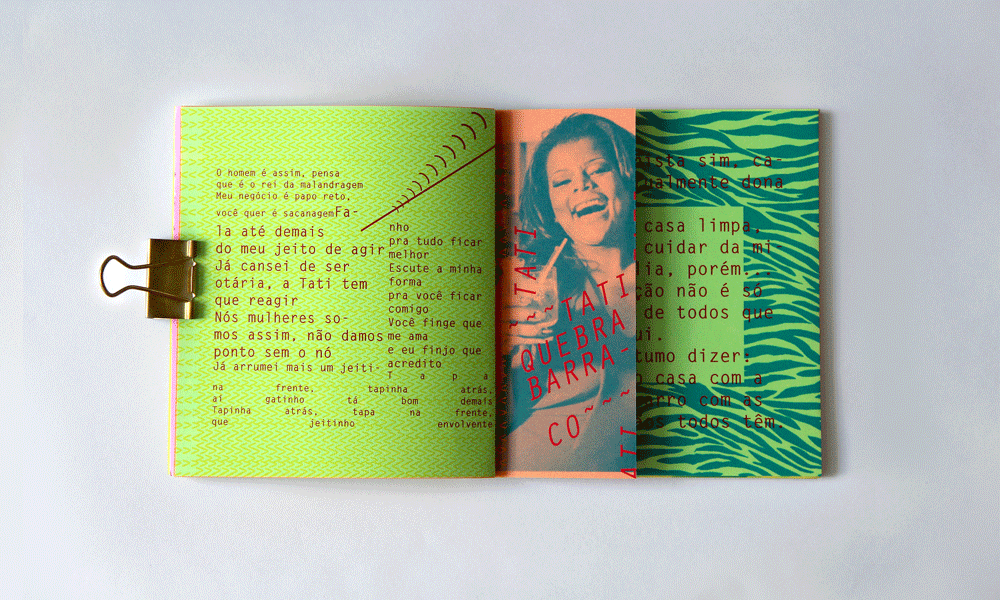 O homem é assim, pensa
que é o rei da malandragem
Meu negócio é papo reto,
você quer é sacanagemFa-
la até demais
do meu jeito de agir
Já cansei de ser
otária, a Tati tem
que reagir
Nós mulheres so-
mos assim, não damos
ponto sem o nó
Já arrumei mais um jeiti-
nho
pra tudo ficar
melhor
Escute a minha
forma
pra você ficar
comigo
Você finge que
me ama
e eu finjo que
acredito
T a p a
na frente, tapinha atrás,
aí gatinho tá bom demais
Tapinha atrás, tapa na frente,
que jeitinho envolvente
~~TATI
~~TATI
QUEBRA
BARRA-
CO~~~
ATI
sim, ca-
ualmente dona
casa limpa,
cuidar da mi-
lia, porém...
ção não é só
de todos que
ui.
tumo dizer:
casa com a
arro com as
os todos têm.